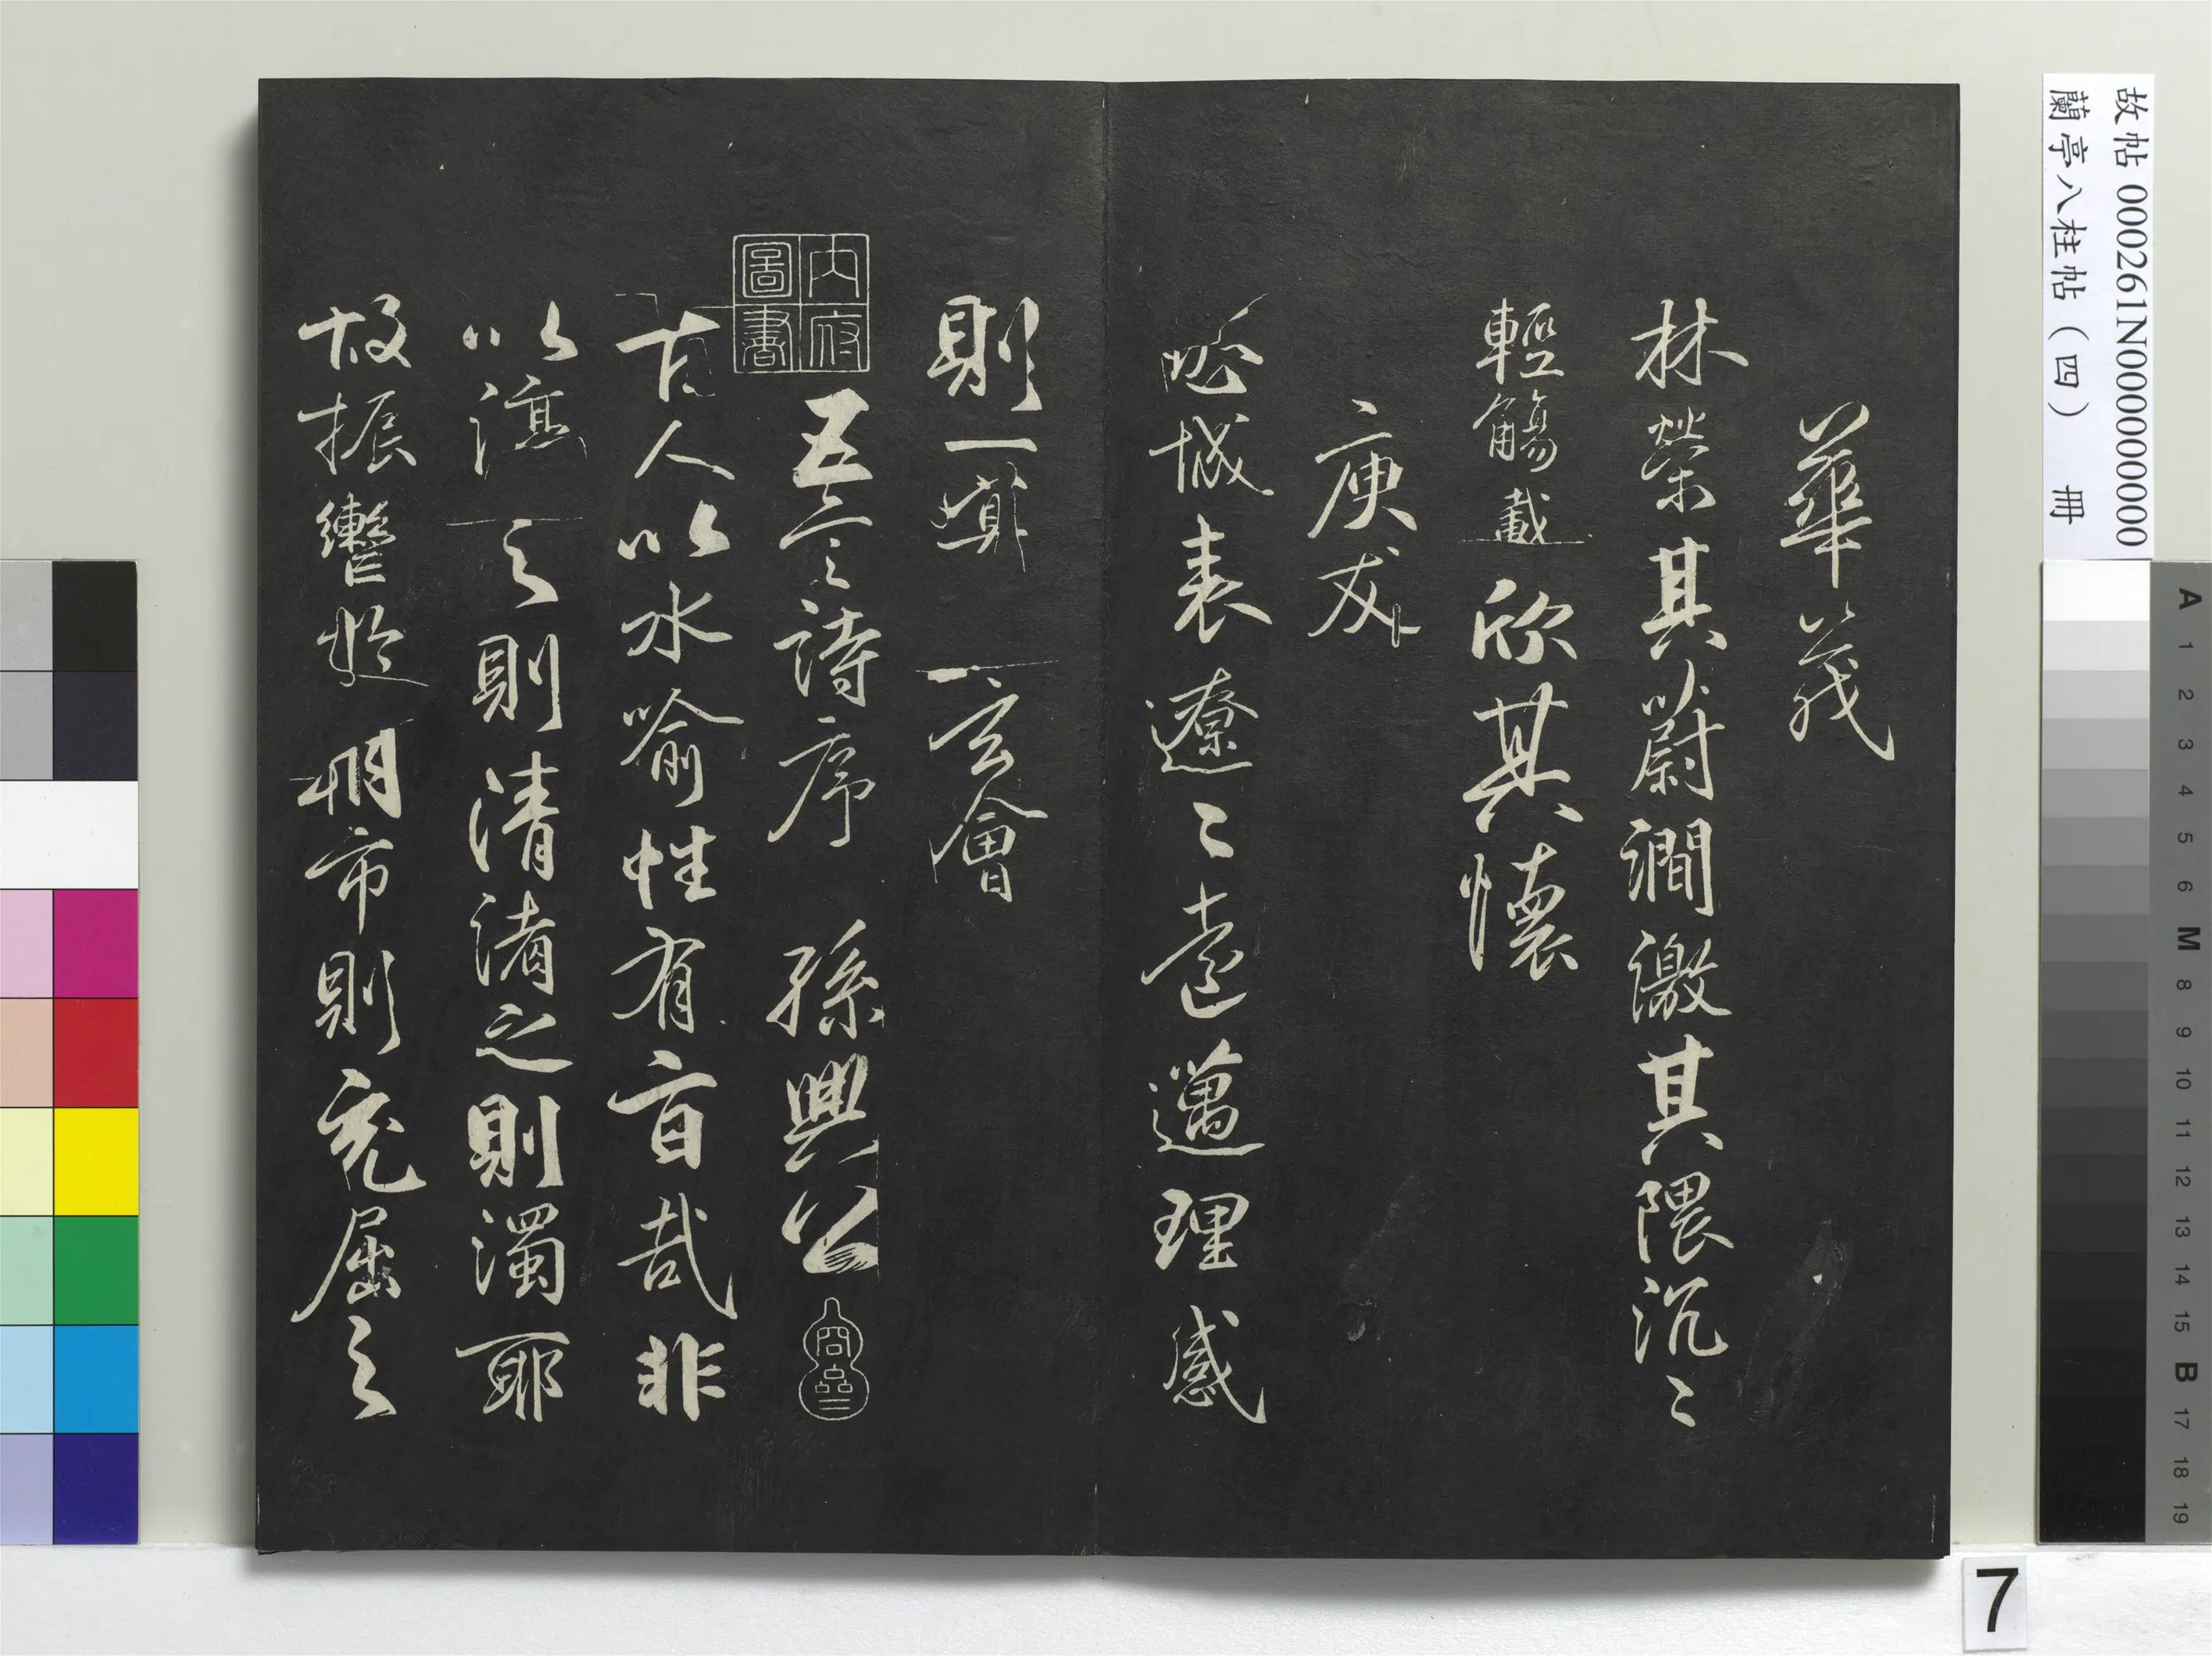 華茂
林榮其蔚澗激其隈汎〻
輕觴載欣其懷
庾友
馳城表遼〻遠邁理感
則一冥 玄會
五言詩序 孫興公
古人以水喻性有旨哉非
以渟之則清淆之則濁耶
故振轡於朝市則充屈之
內府圖書
故帖 000261N000000000
蘭亭八柱帖（四） 冊
A
1
2
3
4
5
6
M
8
9
10
11
12
13
14
15
B
17
18
19
7